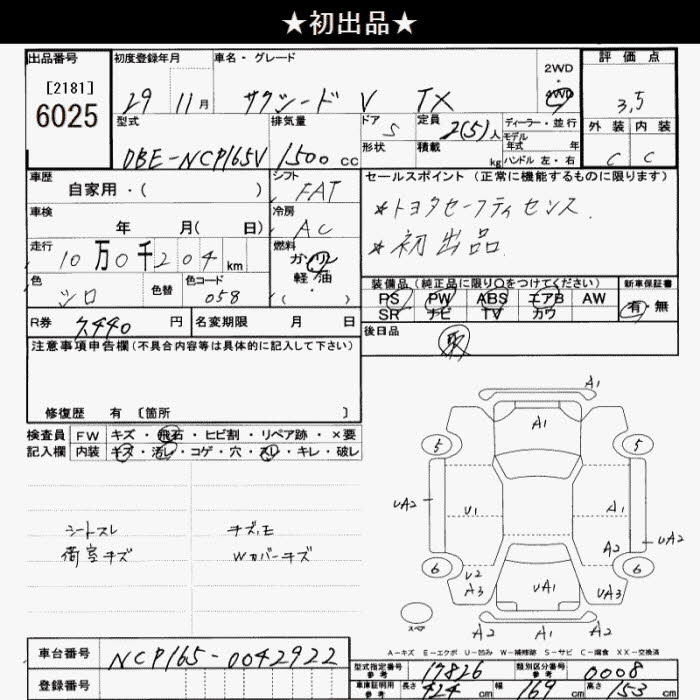 ★初出品★
出品番号 初度登録年月 車名・グレード 2WD ・ 4WD 評価点
[2181]
6025
29 11月 サクシード V TX 3.5
型式 排気量 ドア 5 定員 2(5)人 ディーラー・並行 外装 内装
DBE-NCP165V 1500 cc 形状 積載 kg モデル年式 年 ハンドル 左・右 C C
車歴 シフト セールスポイント (正常に機能するものに限ります)
自家用・( ) FAT
＊トヨタセーフティセンス.
車検 年 月( 日) 冷房 AC
＊初出品
走行 10万0千204km 燃料 ガソリン 軽油 ・ ( )
色 シロ 色替 色コード 058
装備品(純正品に限り○をつけてください) 新車保証書
PS PW ABS エアB AW 有・無
SR ナビ TV カワ
R券 7,440 円 名変期限 月 日
後日品 取
注意事項申告欄(不具合内容等は具体的に記入して下さい)
修復歴 有 〔箇所 〕
検査員 FW キズ・飛石・ヒビ割・リペア跡・×要
記入欄 内装 キズ・汚レ・コゲ・穴・スレ・キレ・破レ
シートスレ
荷室キズ
Wカバーキズ
A1
A1
5 5
UA2 U1 A1 UA2
A2
6 6
U2 UA1 UA3
A3
A2 A1 A2
スペア
A-キズ E-エクボ U-凹み W-補修跡 S-サビ C-腐食 XX-交換済
車台番号 NCP165-0042922
型式指定番号 参考 17826 類別区分番号 参考 0008
登録番号
車庫証明用 参考 長さ 424 cm 幅 169 cm 高さ 153 cm